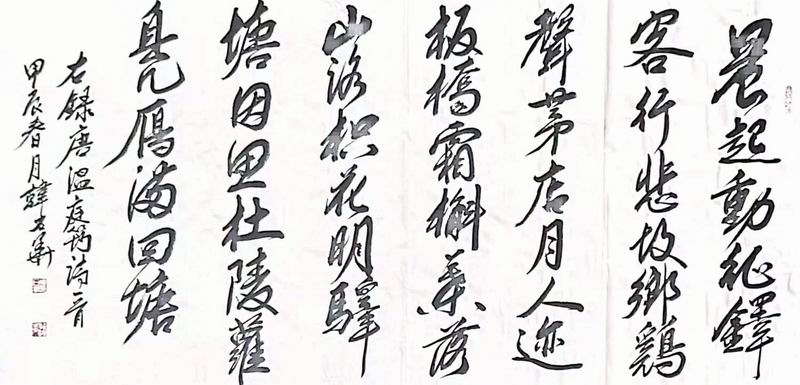 晨起動征鐸
客行悲故鄉鷄
聲茅店月人迹
板橋霜槲葉落
山路枳花明驛
因思杜陵
鳧鴈滿回塘
右錄唐溫庭筠詩一首
甲辰春月韓